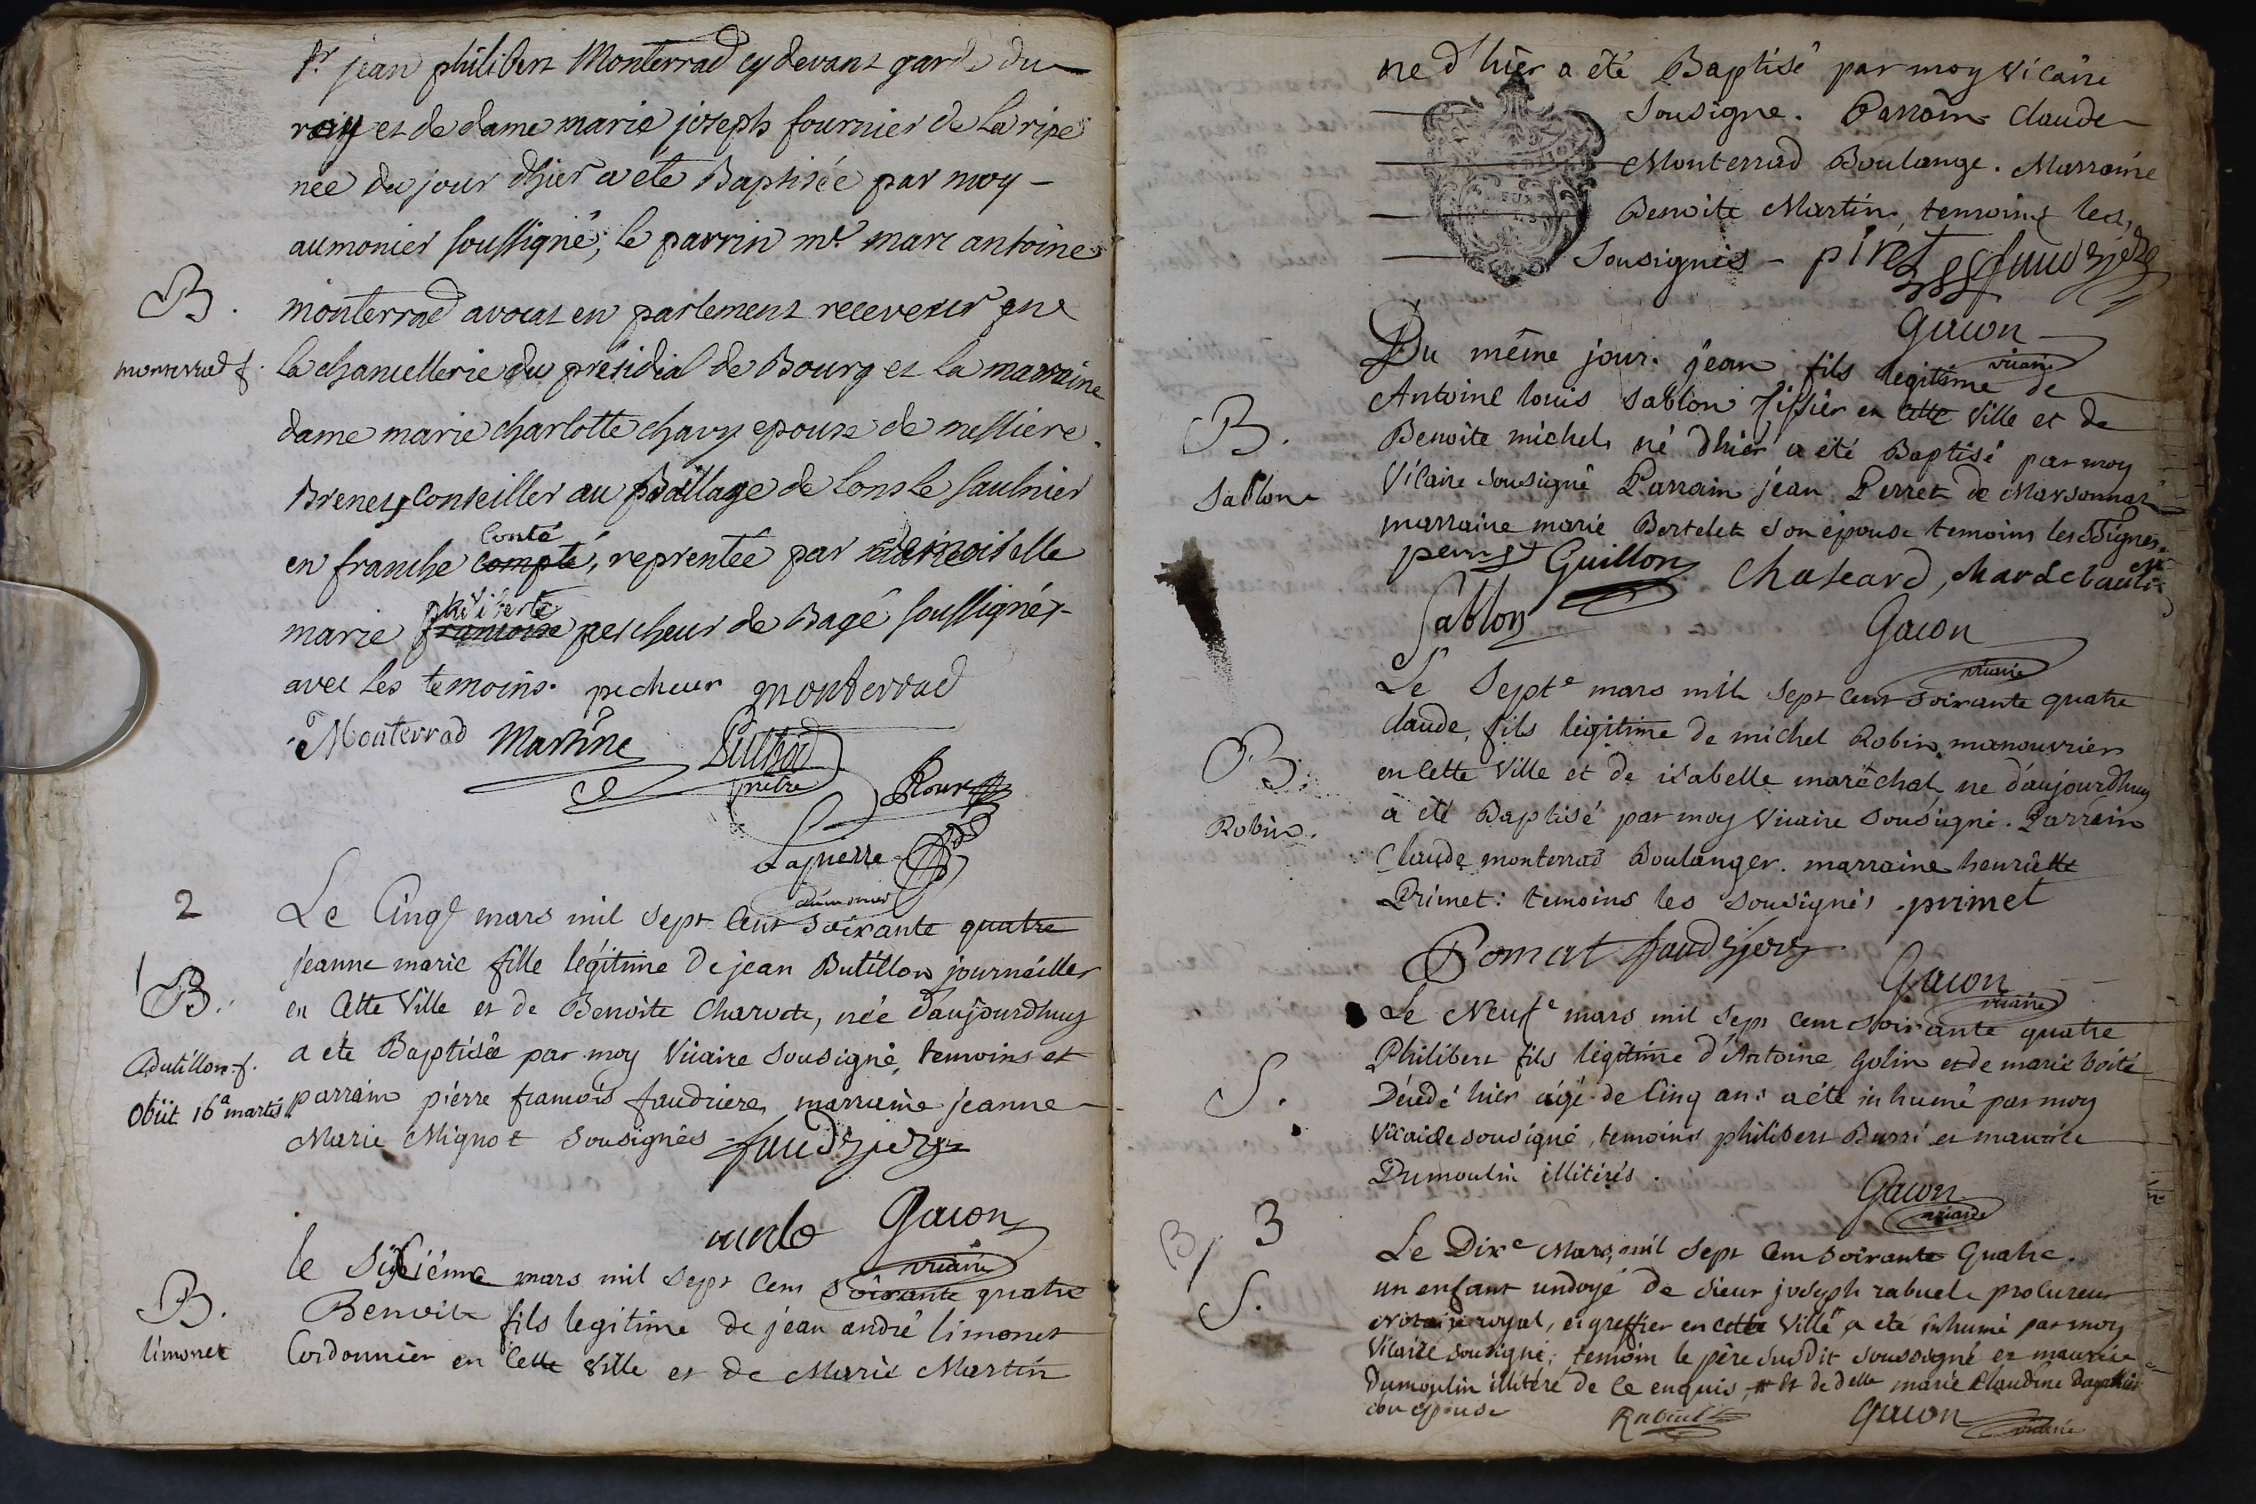 Sr jean philibert Monterrad cy devant garde du
roy et de dame marie joseph fournier de la ripe
née du jour d'hier a été Baptisée par moy
aumonier soussigné, le parrin mr marc antoine
B.
monterrad f.
monterrad avocat en parlement receveur
la chancellerie du présidial de Bourg et la marraine
dame marie charlotte chavy epouse de messiere
Brenet conseiller au Baillage de Lons le saulnier
conté
en franche compté, reprentée par demoiselle
philiberte
marie francoise pescheur de Bagé soussignés
avec les temoins. pecheur monterrad
Monterrad Martine
prêtre Roux
Laguerre
aumonier
2
Le Cinqe mars mil sept cent soixante quatre
B.
Butillon f.
obiit 16a martis
jeanne marie fille légitime de jean Butillon journaillier
en cette Ville et de Benoite Charvete, née d'aujourdhuy
a été Baptisée par moy Vicaire sousigné, temoins et
parrain pierre francois faudriere, marraine jeanne
Marie Mignot sousignés faudrjere
Gacon
vicaire
B.
limonet
le Sixiéme mars mil sept cent soixante quatre
Benoit fils legitime de jean andré limonet
Cordonnier en Cette Ville et de Marie Martin
né d'hier a été Baptisé par moy Vicaire
Sousigné. Parrain Claude
Monterrad Boulange. Marraine
Benoite Martin, temoins les
Sousignés - piret faudrjere
Gacon
vicaire
B.
Sablon
Du même jour. jean fils legitime de
Antoine louis Sablon Tissier en cette Ville et de
Benoite michel né d'hier a été Baptisé par moy
Vicaire sousigné Parrain jean Perret de Marsonnas
marraine marie Bertelet son épouse temoins les sousignés
Guillon Chaseard,
Sablon Gacon
vicaire
B.
Robin.
Le Septe mars mil sept cent soixante quatre
claude, fils légitime de michel Robin manouvrier
en cette Ville et de isabelle maréchal né d'aujourdhuy
a été Baptisé par moy Vicaire sousigné. Parrain
Claude monterrad Boulanger. marraine henriette
Primet: temoins les sousignés. primet
faudrjere
Gacon
vicaire
S.
Le Neufe mars mil sept cent soixante quatre
Philibert fils légitime d'Antoine Golin et de marie boité
Décédé hier agé de Cinq ans a été inhumé par moy
Vicaire sousigné, temoins philibert Burri et maurice
Dumoulin illitérés.
Gacon
vicaire
B/ 3
S.
Le Dixe Mars mil sept cent soixante Quatre
un enfant undoyé de sieur joseph rabuel procureur
Notaire royal, et greffier en cette Ville a été inhumé par moy
Vicaire sousigné; temoin le père susdit soussigné et maurice
Dumoulin illitéré de ce enquis, et de delle marie Claudine
son épouse Rabuel Gacon
vicaire